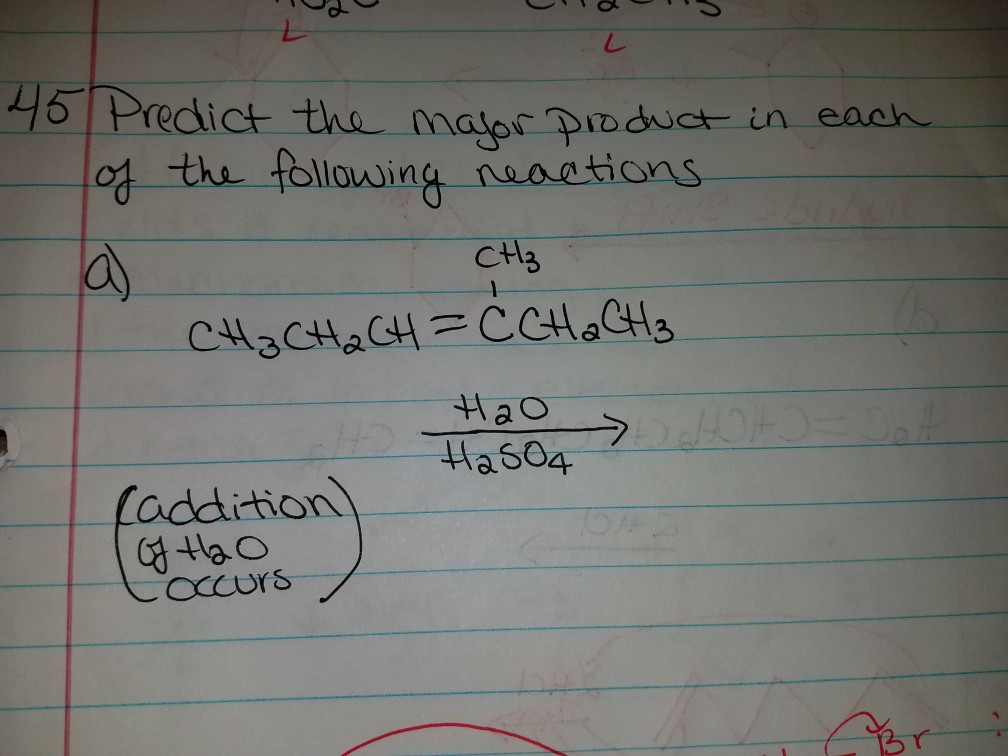 L L
45 Predict the major product in each
of the following reactions
a)
CH3
CH3CH2CH=CCH2CH3
H2O
H2SO4
(addition
of H2O
occurs)
Br